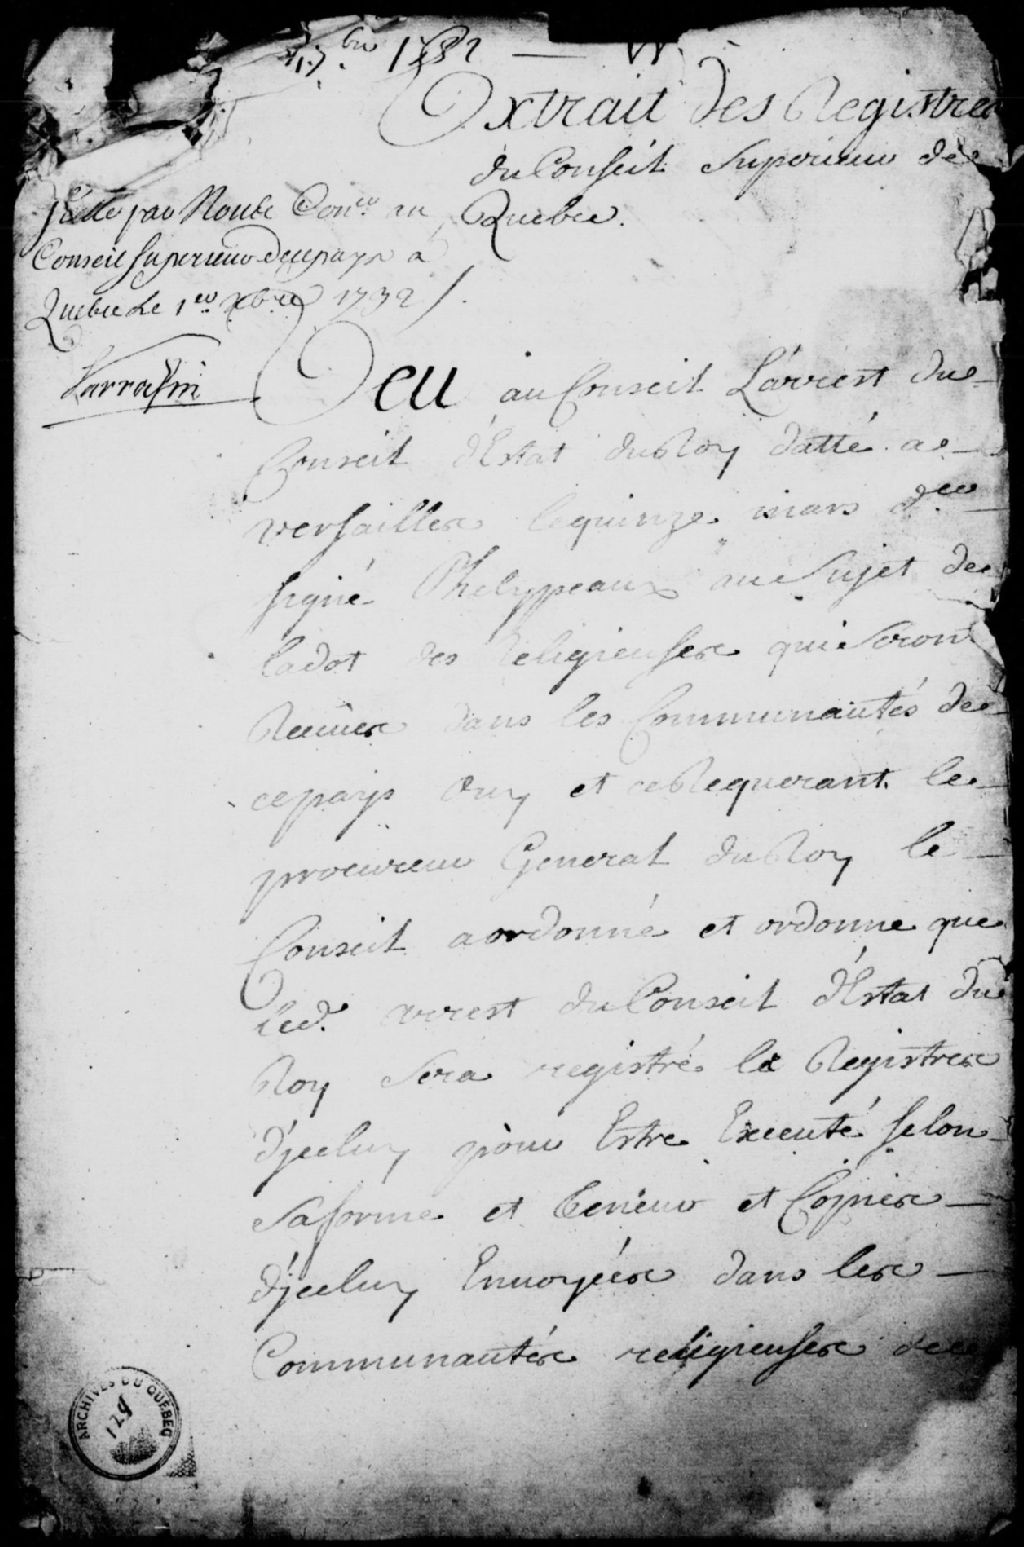 1732
Extrait des Registres
du Conseil Superieur de
Quebec.
par Nous Con.er au
Conseil Superieur de ce pays a
Quebec Le 1.er Xbre 1732 /.
Sarrazin
Veu au Conseil L'arrest du
Conseil d'Estat du Roy datté a
Versailles le quinze mars d.er
signé Phelypeaux au Sujet de
la dot des Religieuses qui Seront
Receües dans les Communautés de
ce pays Ouy et ce Requerant le
procureur General du Roy le
Conseil a ordonné et ordonne que
Led. arrest du Conseil d'Estat du
Roy Sera registré Registres
d'jceluy pour Estre Executé Selon
Sa forme et teneur et Copies
d'jceluy Envoyées dans les
Communautés religieuses de ce
ARCHIVES DU QUÉBEC